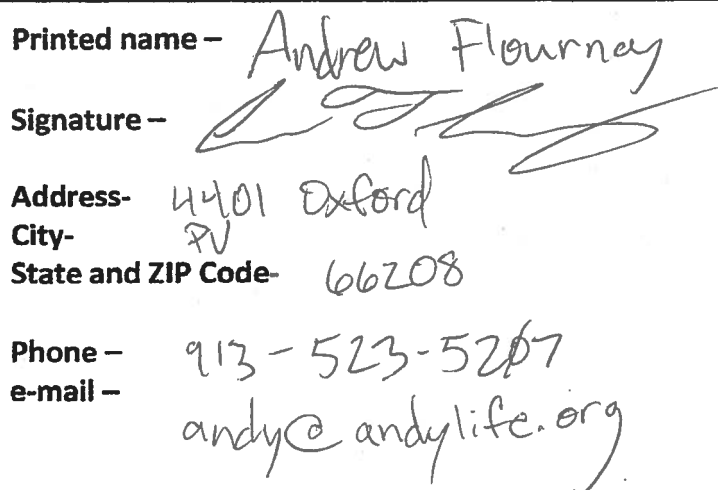 Printed name – Andrew Flournoy
Signature –
Address- 4401 Oxford
City- PV
State and ZIP Code- 66208
Phone – 913-523-5207
e-mail – andy@andylife.org